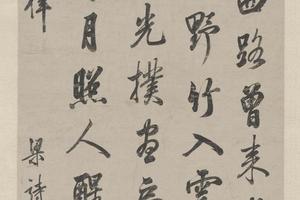 西路曾来
野竹入雲
光撲畫
月照人醒
律
梁詩